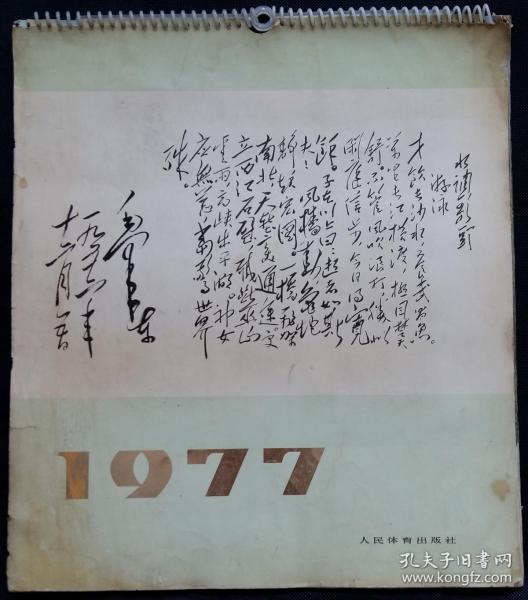 水调歌头
游泳
才饮长沙水，又食武昌鱼。
万里长江横渡，极目楚天
舒。不管风吹浪打，胜似
闲庭信步，今日得宽
馀。子在川上曰：逝者如斯
夫！风樯动，龟蛇
静，起宏图。一桥飞架
南北，天堑变通途。更
立西江石壁，截断巫山
云雨，高峡出平湖。神女
应无恙，当惊世界
殊。
毛泽东
一九五六年
十二月五日
1977
人民体育出版社
孔夫子旧书网
www.kongfz.com